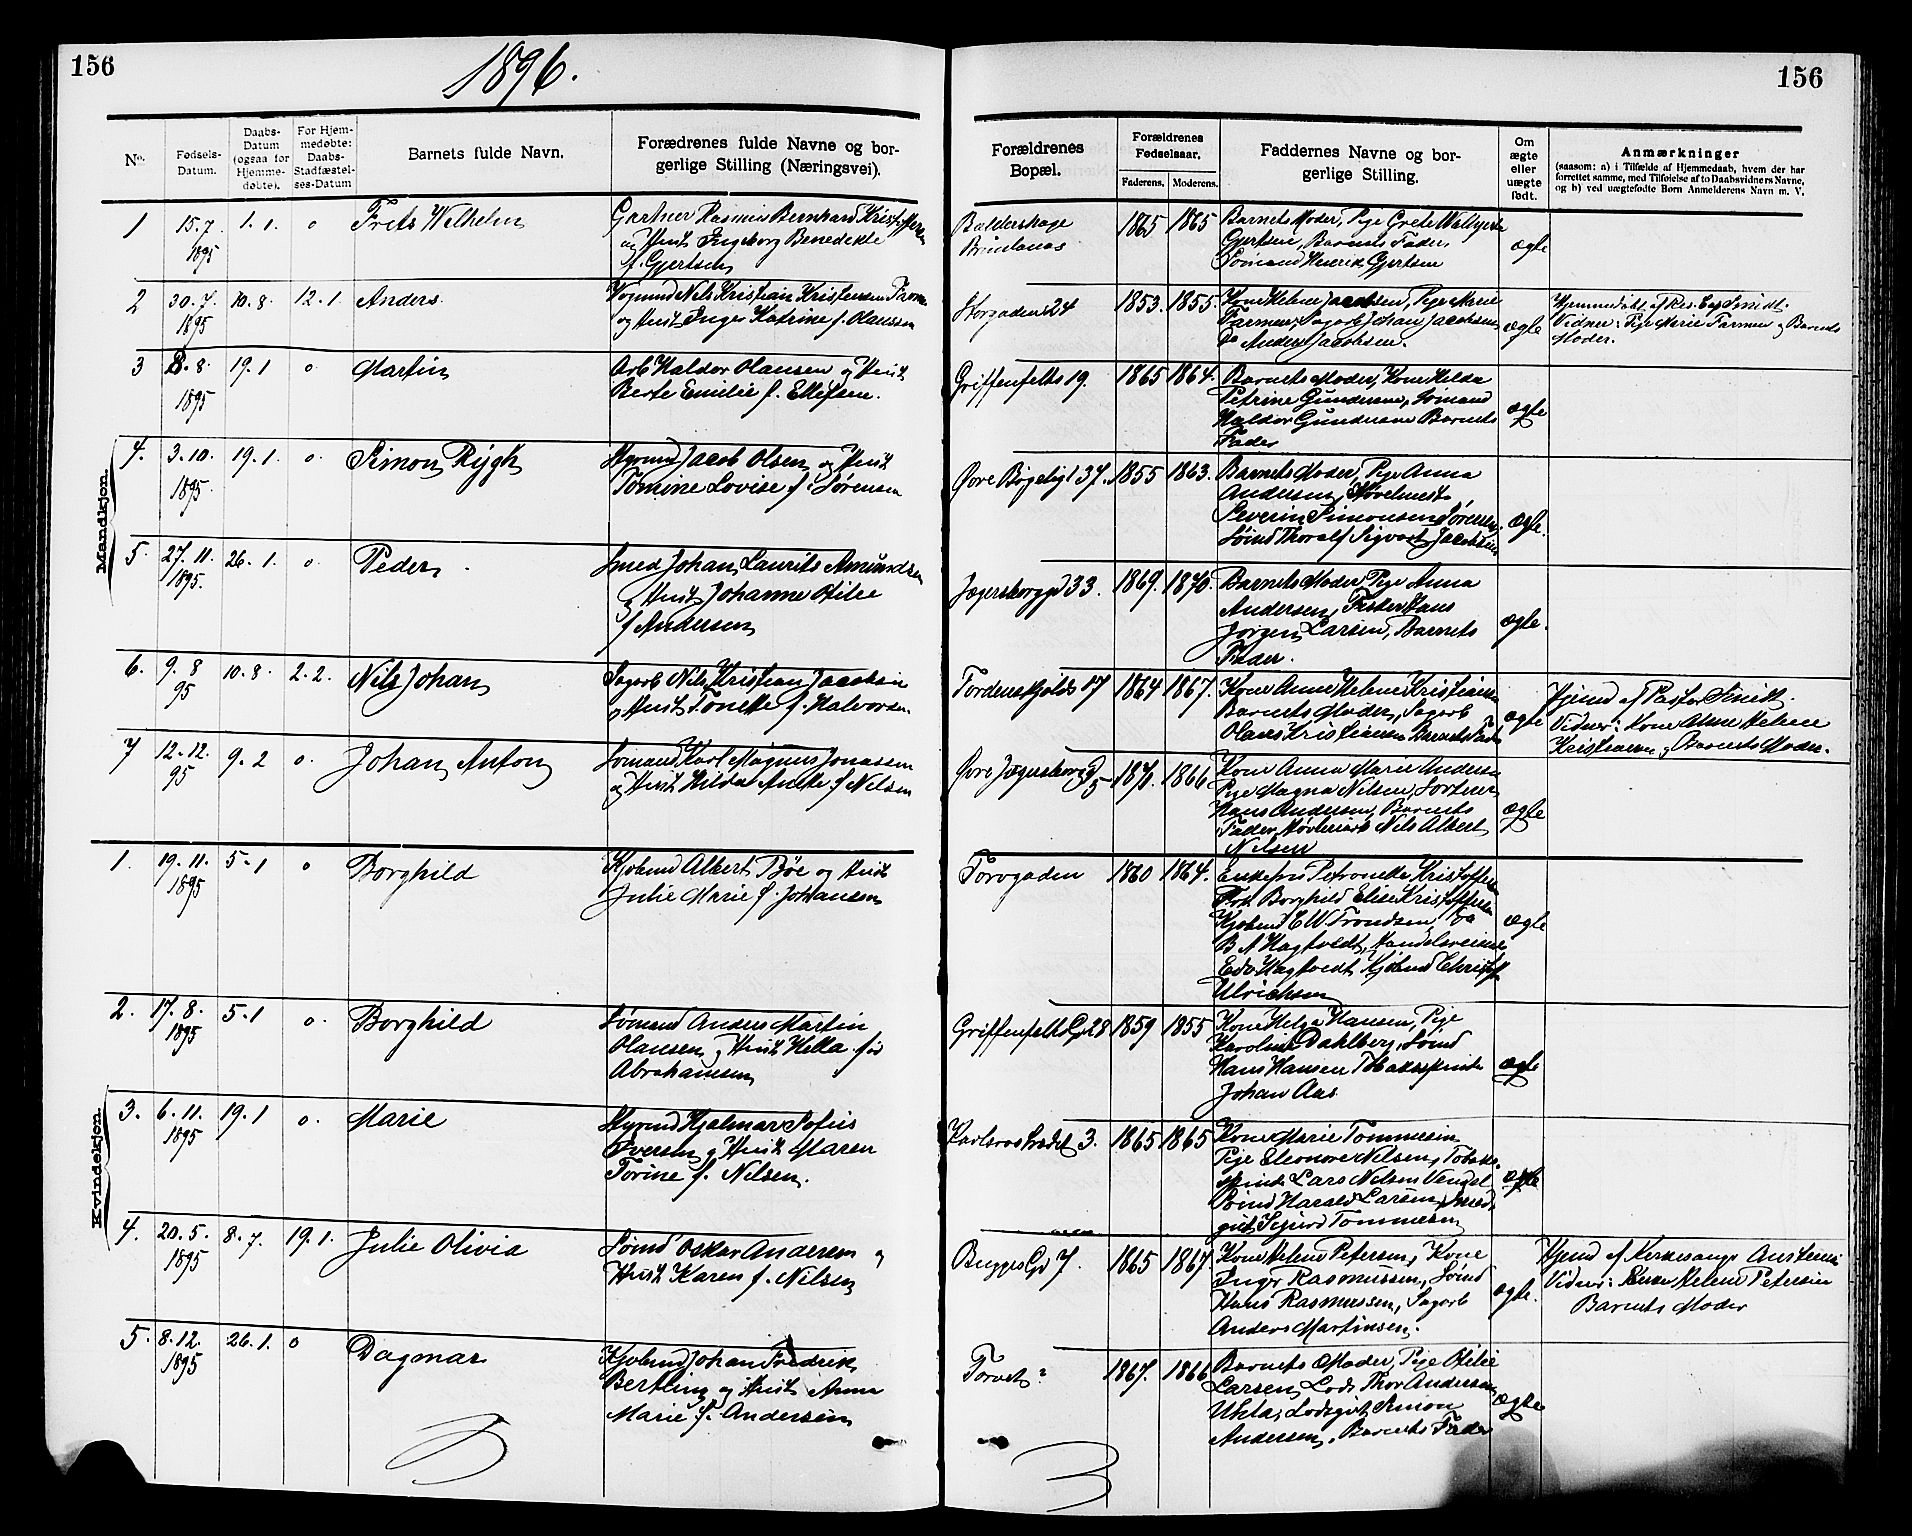 156
1896.
156
No.
Fødsels-
Datum.
Daabs-
Datum
(ogsaa for
Hjemme-
døbte).
For Hjem-
medøbte:
Daabs-
Stadfæstel-
ses-Datum
Barnets fulde Navn.
Forædrenes fulde Navne og bor-
gerlige Stilling (Næringsvei).
Forældrenes
Bopæl.
Forældrenes
Fødselsaar.
Faderens. Moderens.
Faddernes Navne og bor-
gerlige Stilling.
Om
ægte
eller
uægte
født.
Anmærkninger
(saasom: a) i Tilfælde af Hjemmedaab, hvem der har
forrettet samme, med Tilføielse af to Daabsvidners Navne,
og b) ved uægtefødte Børn Anmelderens Navn m. V.
Mandkjøn.
1 15.7 1895 1.1. o Frits Wilhelm
Gartner Rasmus Bernhard Kristoffersen
og Hust Ingeborg Benedikte
f. Gjertsen
1865 1865
Barnets Moder, Pige Grete
Gjertsen, Barnets Fader,
Sømand Henrik Gjertsen
ægte
2 30.7. 1895 10.8. 12.1. Anders
Nils Kristian Kristensen
og Hust Inger Katrine f. Olaussen
Storgaden 24 1853. 1855.
Kone Helene Jacobsen, Pige Marie
Farmen, Sagarb Johan Jacobsen
Do Anders Jacobsen.
ægte
Vidner: Pige Marie Farmen og Barnets
Moder.
3 8.8. 1895 19.1 o Martin
Arb Haldor Olausen og Hust
Berte Emilie f. Ellefsen.
Griffenfelts 19. 1865 1864.
Barnets Moder, Kone Hilda
Petrine Gundersen, Sømand
Haldor Gundersen Barnets
Fader
ægte
4. 3.10. 1895. 19.1. o. Simon Rygh
Styrmd Jacob Olsen og Hust
Tomine Lovise f. Sørensen
Øvre Bøgeligt 37. 1855 1863.
Barnets Moder, Pige Anna
Andersen,
Severin Simonsen Sørensen,
Sømd Thoralf Sigvart Jacobsen
ægte.
5. 27.11. 1895. 26.1. o. Peder
Smed Johan Laurits Amundsen
og Hust Johanne Otilie
f Andersen
Jegersborggd 33. 1869. 1870.
Barnets Moder, Pige Anna
Andersen, Fisker Hans
Jørgen Larsen, Barnets
Fader.
ægte.
6. 9.8 95 10.8. 2.2. Nils Johan
Sagarb Nils Kristian Jacobsen
og Hust Tonette f. Halvorsen
Tordenskjolds 17 1864 1867.
Kone Anne Helene Kristiansen
Barnets Moder, Sagarb
Olaus Kristiansen Barnets Fader
ægte
Hjemd af Pastor Smidt.
Vidner: Kone Anne Helene
Kristiansen og Barnets Moder.
7 12.12. 95 9.2 o. Johan Anton
Sømand Karl Magnus Jonassen
og Hust Hilda Anette f Nilsen
Øvre Jegersborggd 5 1870. 1866
Kone Anna Marie Andersen
Pige Magna Nilsen,
Hans Andersen, Barnets
Fader, Nils Albert
Nilsen
ægte
Kvindekjøn.
1. 19.11. 1895 5.1 o Borghild
Kjøbmd Albert Bøe og Hust
Julie Marie f. Johansen
Torvgaden 1860 1864.
Enkefru Petronelle Kristoffersen
Frk Borghild Elise Kristoffersen
Kjøbmd C W Trondsen,
B A Hagtvedt, Handelsreisende
Edv Hagtvedt, Kjøbmd Christ
Ulrichsen
ægte
2. 17.8. 1895 5.1 o. Borghild
Sømand Anders Martin
Olausen og Hust Hella fød
Abrahamsen
Griffenfelts Gd 28 1859 1855
Kone Helga Hansen, Pige
Karoline Dahlberg, Sømd
Hans Hansen Tobakspinder
Johan Aas
ægte
3. 6.11. 1895 19.1 o. Marie
Styrmd Hjalmar Sofus
Iversen og Hust Maren
Torine f. Nilsen.
3. 1865 1865
Kone Marie Tommesen
Pige Eleonore Nilsen, Tobaks-
spinder Lars Nilsen
Sømd Harald Larsen, Smed-
gut Sigurd Tommesen
ægte
4. 20.5. 1895 8.7. 19.1. Julie Olivia
Sømd Oskar Andersen og
Hust Karen f. Nilsen
Bugges Gd 7. 1865 1867
Kone Helene Petersen, Kone
Inger Rasmussen, Sømd
Hans Rasmussen, Sagarb
Anders Martinsen.
ægte.
Hjemd af Kirkesanger
Vidner: Kone Helene Petersen
Barnets Moder
5. 8.12. 1895 26.1. o Dagmar
Kjøbmd Johan Fredrik
Bertling og Hust Anna
Marie f. Andersen
Torvet? 1867. 1866
Barnets Moder, Pige Otilie
Larsen, Lods Thor Andersen
Ula, Lodsgut Simon
Andersen, Barnets Fader
ægte